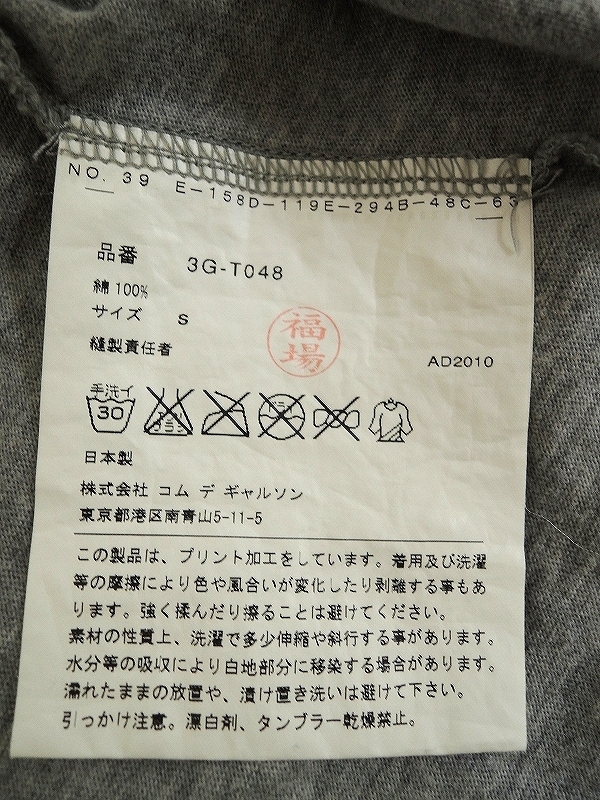 NO. 39 E-158D-119E-294B-48C-63
品番 3G-T048
綿 100%
サイズ S
縫製責任者
福場
AD2010
手洗イ
30
エンソサラシ
ドライ
日本製
株式会社 コム デ ギャルソン
東京都港区南青山5-11-5
この製品は、プリント加工をしています。着用及び洗濯
等の摩擦により色や風合いが変化したり剥離する事もあ
ります。強く揉んだり擦ることは避けてください。
素材の性質上、洗濯で多少伸縮や斜行する事があります。
水分等の吸収により白地部分に移染する場合があります。
濡れたままの放置や、漬け置き洗いは避けて下さい。
引っかけ注意。漂白剤、タンブラー乾燥禁止。